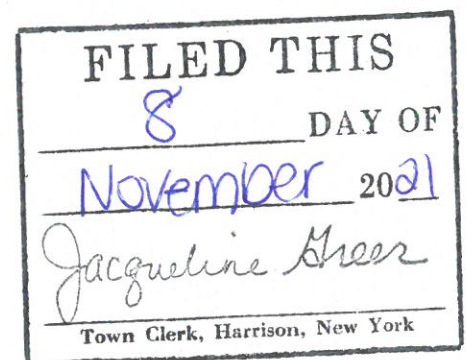 FILED THIS
8 DAY OF
November 2021
Jacqueline Greer
Town Clerk, Harrison, New York